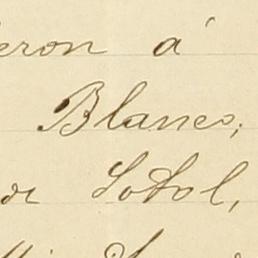 eron á
Blanco;
de Sotol,